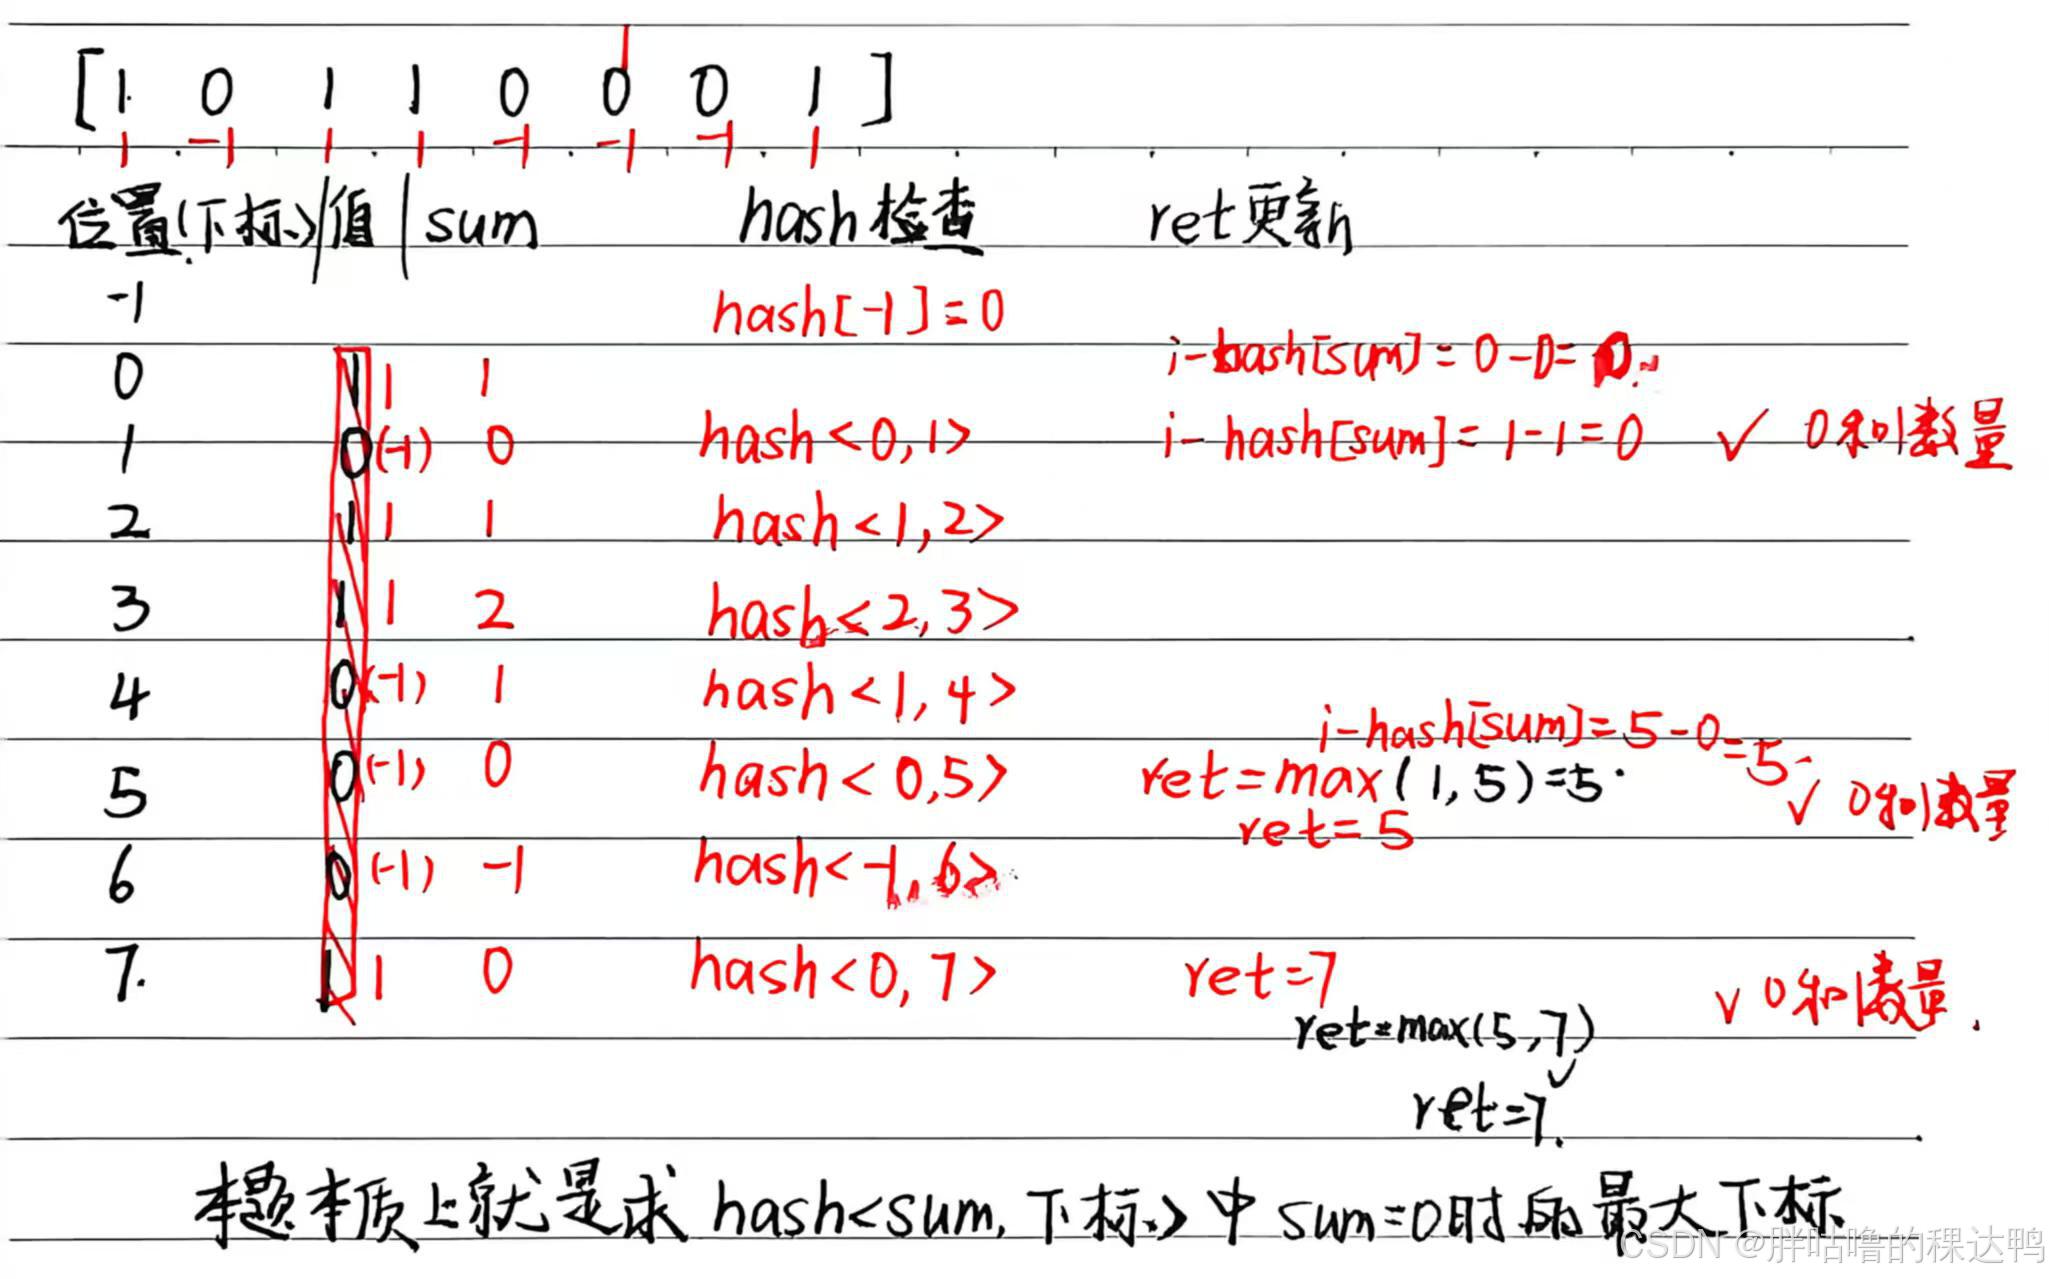 [1 0 1 1 0 0 0 1]
1 -1 1 1 -1 -1 -1 1
位置(下标)|值|sum hash检查 ret更新
-1 hash[-1]=0
0 1 1 1 i-hash[sum]=0-0=0
1 0(-1) 0 hash<0,1> i-hash[sum]=1-1=0 ✓ 0和1数量
2 1 1 1 hash<1,2>
3 1 1 2 hash<2,3>
4 0(-1) 1 hash<1,4>
i-hash[sum]=5-0=5
5 0(-1) 0 hash<0,5> ret=max(1,5)=5 ✓ 0和1数量
ret=5
6 0(-1) -1 hash<-1,6>
7. 1 1 0 hash<0,7> ret=7 ✓ 0和1数量.
ret=max(5,7)
✓
ret=7.
本题本质上就是求 hash<sum,下标> 中 sum=0时的最大下标
CSDN @胖咕噜的稞达鸭